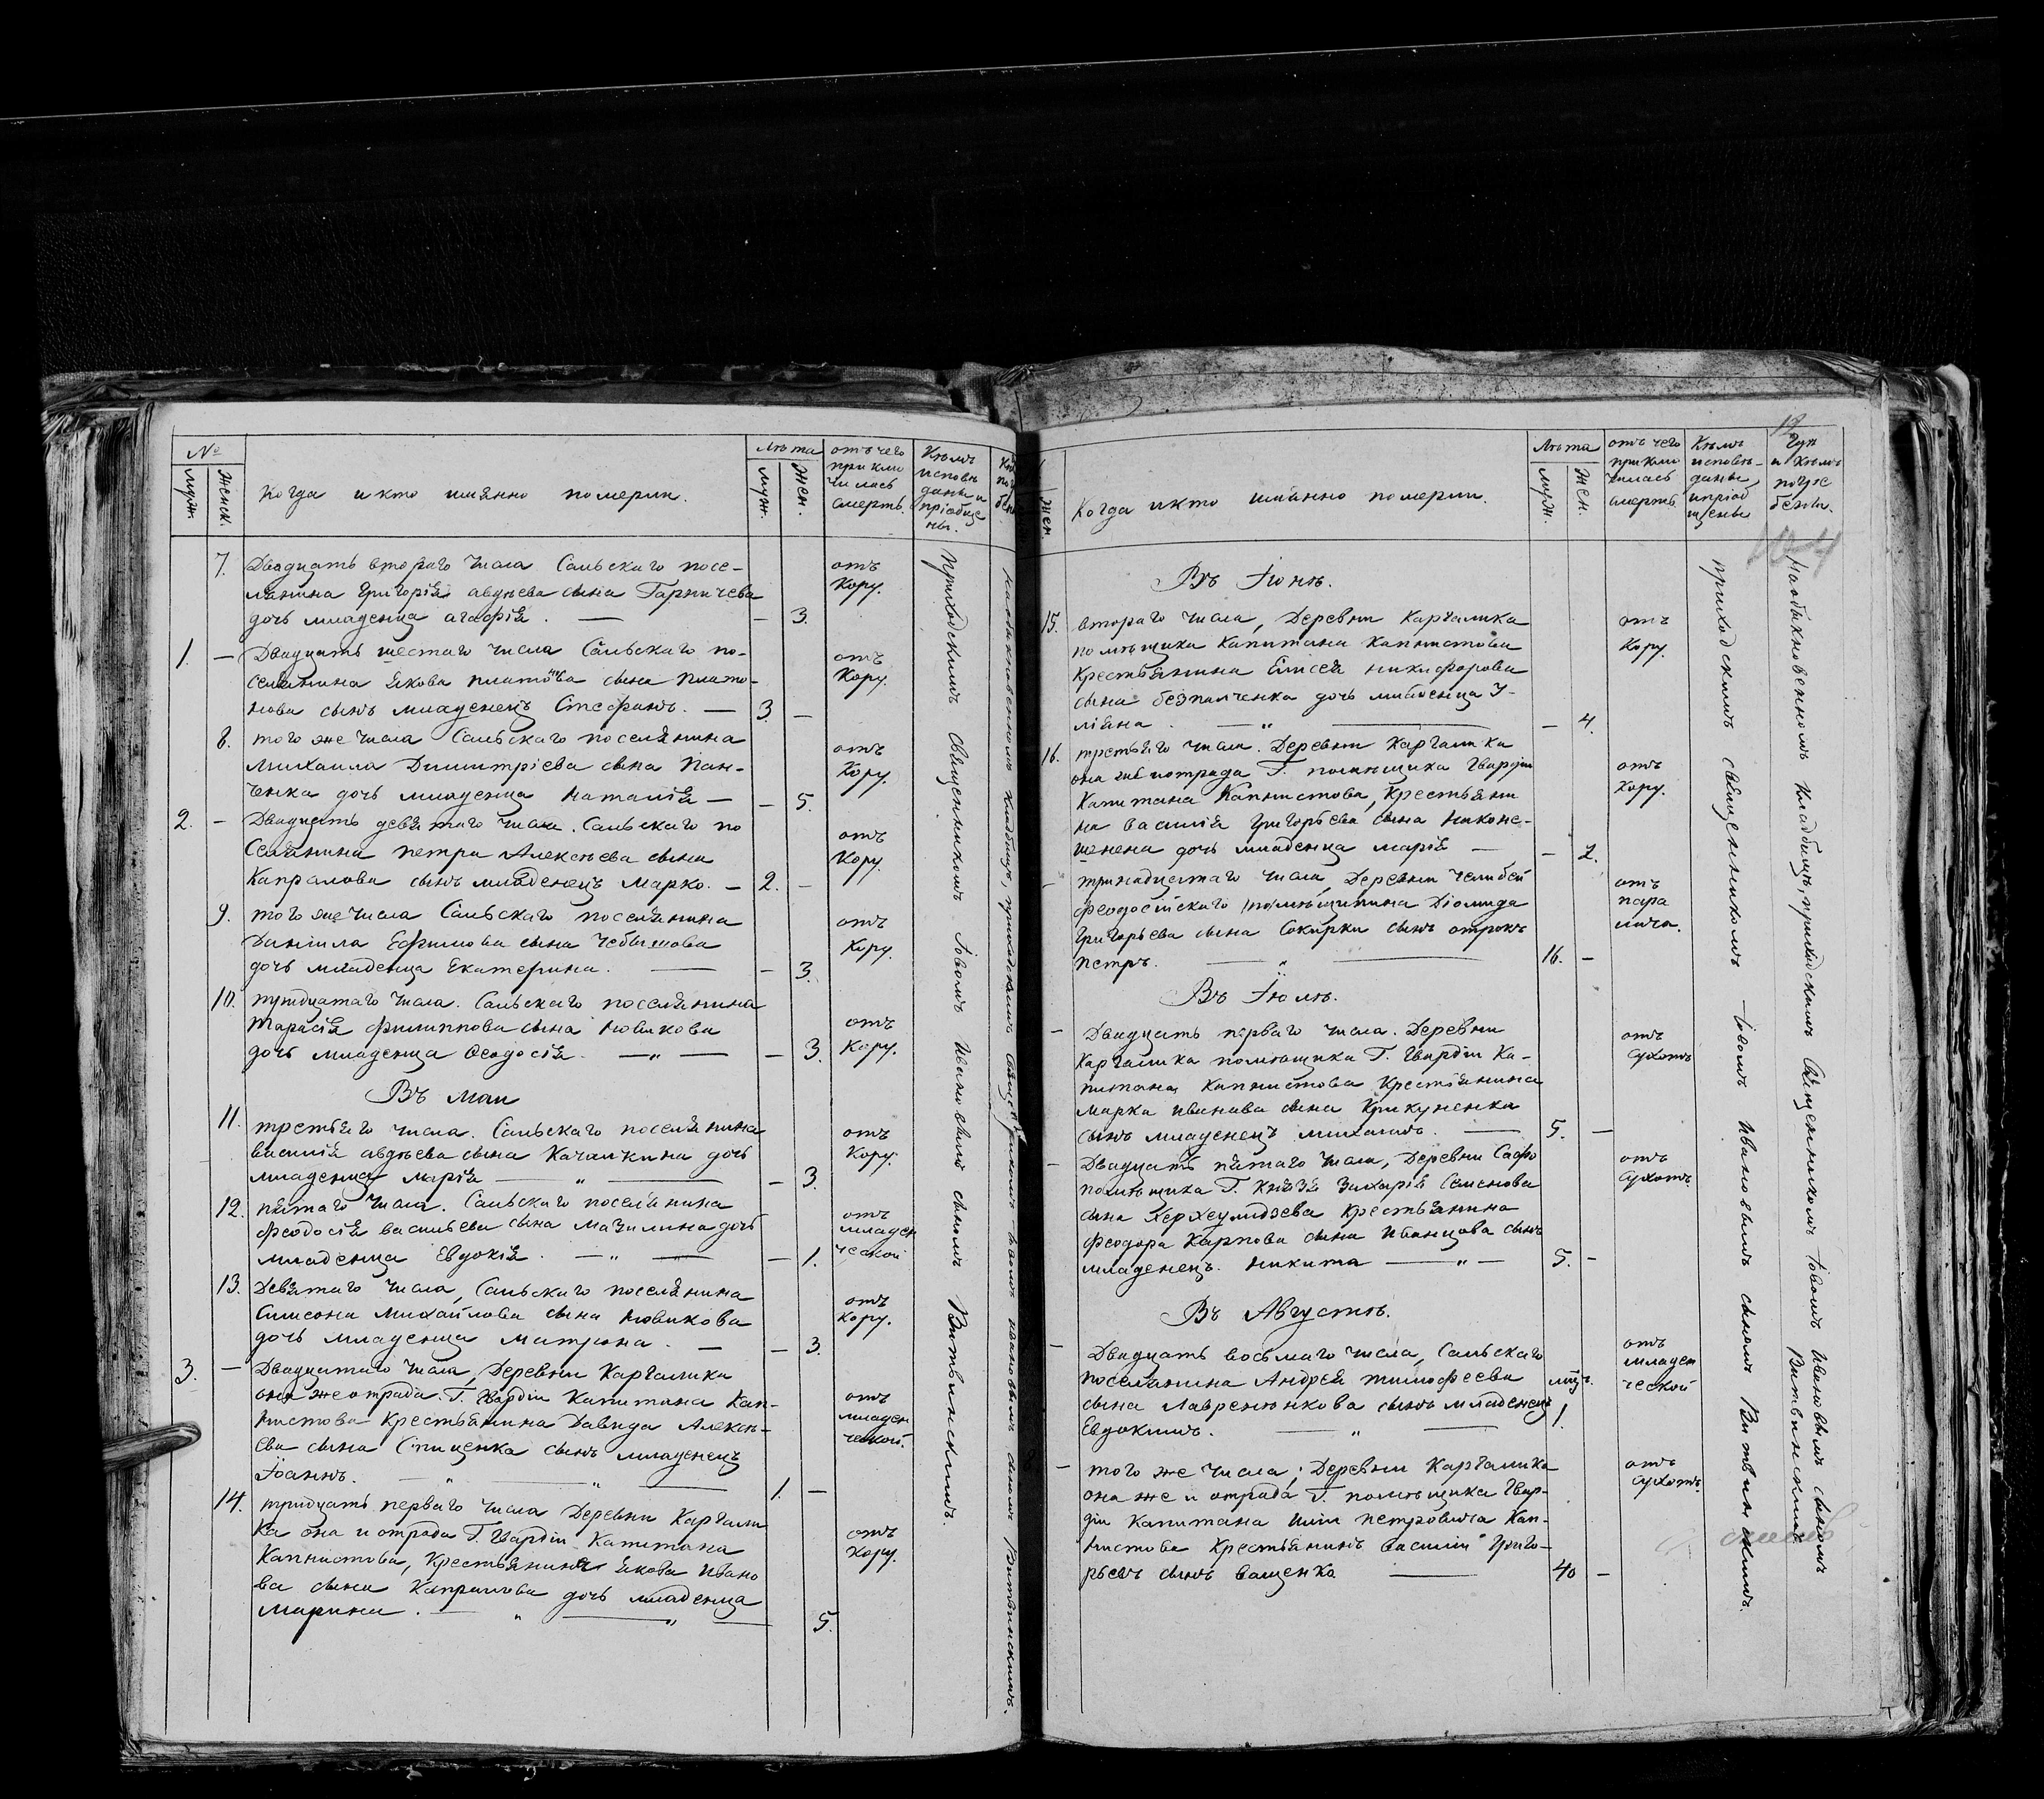 №
муж.
Женск.
Когда и кто имянно померли.
Лѣта
муж.
Жен.
отъ чего
приклю
чилась
смерть.
Кѣмъ
исповѣ
даны и
пріобще
ны.
7. Двадцать втораго числа Сальскаго посе-
лянина Григорія авдѣева сына Гарпичева
дочь младенца агафія. — 3.
отъ
Кору.
1. — Двадцать шестаго числа Сальскаго по-
селянина Якова платонова сына Плато-
нова сынъ младенецъ Стефанъ. — 3. —
отъ
Кору.
8. того же числа Сальскаго поселянина
Михаила Димитріева сына Пан-
ченка дочь младенца Наталія — — 5.
отъ
Кору.
2. — Двадцать девятаго числа. Сальскаго по
Селянина петра Алексѣева сына
Капралова сынъ младенецъ Марко. — 2. —
отъ
Кору.
9. того же числа Сальскаго поселянина
Даніила Ефимова сына Чебышова
дочь младенца Екатерина. — — 3.
отъ
Кору.
10. тридцатаго числа. Сальскаго поселянина
Тарасія филиппова сына Новикова
дочь младенца Ѳеодосія. — „ — — 3.
отъ
Кору.
Въ маи
11. третьяго числа. Сальскаго поселянина
василія авдѣева сына Качалкина дочь
младенца Марія — „ — — 3.
отъ
Кору.
12. пятаго числа. Сальскаго поселянина
феодосія васильева сына Мазилина дочь
младенца Евдокія. — „ — — 1.
отъ
младен
ческой
13. Девятаго числа, Сальскаго поселянина
Симеона Михайлова сына Новикова
дочь младенца Матрона. — — 3.
отъ
кору.
3. — Двадцатаго числа, Деревни Каргалика
она же отрада. Г. Гвардіи Капитана Кап-
нистова крестьянина Давида Алексѣ-
ева сына Спиценка сынъ младенецъ
Іоаннъ. — „ — „ — 1. —
отъ
младен
ческой.
14. тридцать перваго числа Деревни Каргали
ка она и отрада Г. Гвардіи Капитана
Капнистова, крестьянина Якова Ивано
ва сына Капралова дочь младенца
Марина. — „ — „ — 5.
отъ
Кору.
приходскимъ священникомъ Іовомъ Ивановымъ сыномъ Витвинскимъ.
Жен
Когда и кто имянно померли.
Лѣта
муж.
Жен.
отъ чего
приклю
чилась
смерть.
Кѣмъ
исповѣ-
даны,
и пріоб
щены
Гдѣ
и кѣмъ
погре
бены.
Въ Іюнѣ.
15. втораго числа, Деревни Каргалика
помѣщика Капитана Капнистова
Крестьянина Елисея никифорова
сына безпалченка дочь младенца У-
ліяна. — „ — — 4.
отъ
Кору.
16. третьяго числа. Деревни Каргалика
она же и отрада Г. помѣщика Гвардіи
Капитана Капнистова, Крестьяни
на василія Григорьева сына Наконе-
дочь младенца марія — — 2.
отъ
Кору.
— тринадцатаго числа, Деревни Челибей
феодосійскаго Діомида
Григорьева сына Сокирки сынъ отрокъ
петръ. — „ — 16. —
отъ
пара
лича.
Въ Іюлѣ.
— Двадцать перваго числа. Деревни
Каргалика помѣщика Г. Гвардіи Ка-
питана Капнистова Крестьянина
марка Иванова сына Крикуненка
сынъ младенецъ михаилъ. — 5. —
отъ
сухотъ
— Двадцать пятаго числа, Деревни Сафо
помѣщика Г. Князя Захарія Семенова
сына Херхеулидзева Крестьянина
феодора Карпова сына Иванцова сынъ
младенецъ Никита — „ — 5. —
отъ
сухотъ.
Въ Августѣ.
— Двадцать восьмаго числа, Сальскаго
поселянина Андрея тимофеева
сына Лавренюнкова сынъ младенецъ
Евдокимъ. — „ — 1.
отъ
младен
ческой
— того же числа; Деревни Каргалика
она же и отрада Г. помѣщика Гвар-
діи Капитана Иліи петровича Кап-
нистова Крестьянинъ василій Григо-
рьевъ сынъ ващенко — 40 —
отъ
сухотъ.
приходскимъ священникомъ Іовомъ Ивановымъ сыномъ Витвинскимъ.
на обыкновенномъ кладбищѣ, приходскимъ Священникомъ Іовомъ Ивановымъ сыномъ
Витвинскимъ